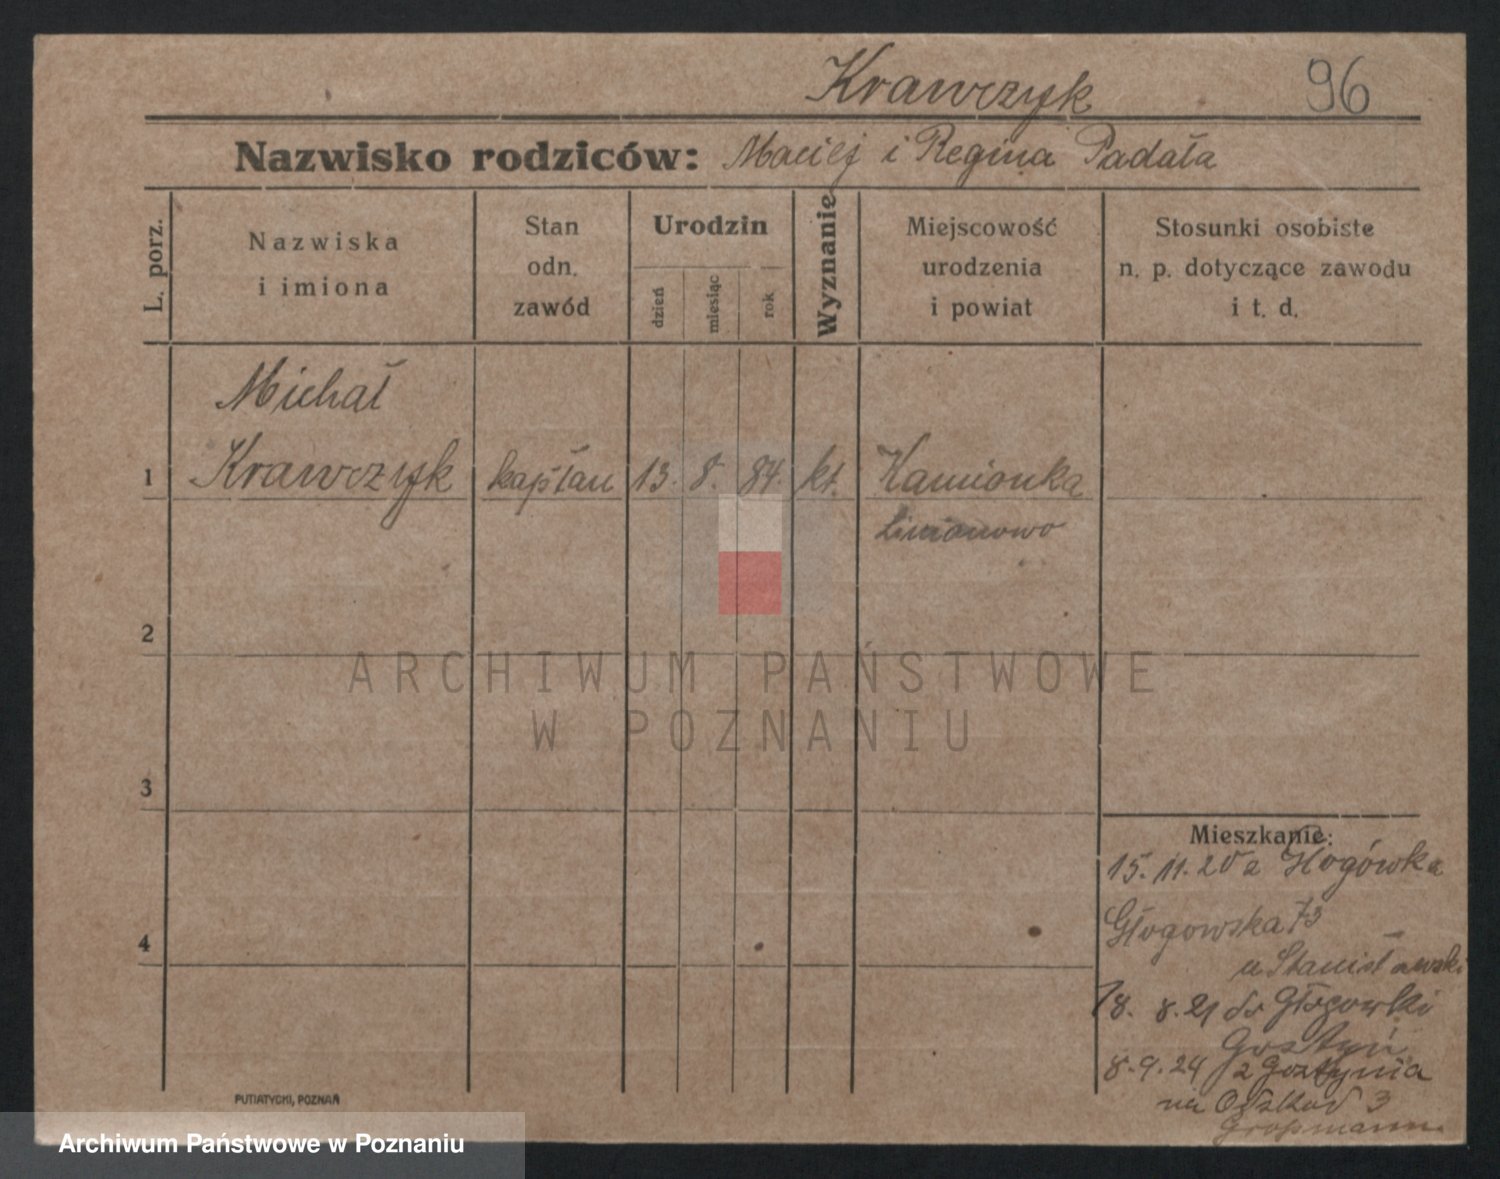 Krawczyk 96
Nazwisko rodziców: Maciej i Regina Padała
L. porz.
Nazwiska
i imiona
Stan
odn.
zawód
Urodzin
dzień
miesiąc
rok
Wyznanie
Miejscowość
urodzenia
i powiat
Stosunki osobiste
n. p. dotyczące zawodu
i t. d.
Michał
1 Krawczyk kapłan 13. 8. 84. kt. Kamionka
Limanowo
2
ARCHIWUM PAŃSTWOWE
W POZNANIU
3
Mieszkanie:
15. 11. 20 z
4
Głogowska 73
u Stanisławski
18. 8. 21 do
Gostyń
8. 9. 24 z Gostynia
na 3
Großmann
PUTIATYCKI, POZNAŃ
Archiwum Państwowe w Poznaniu